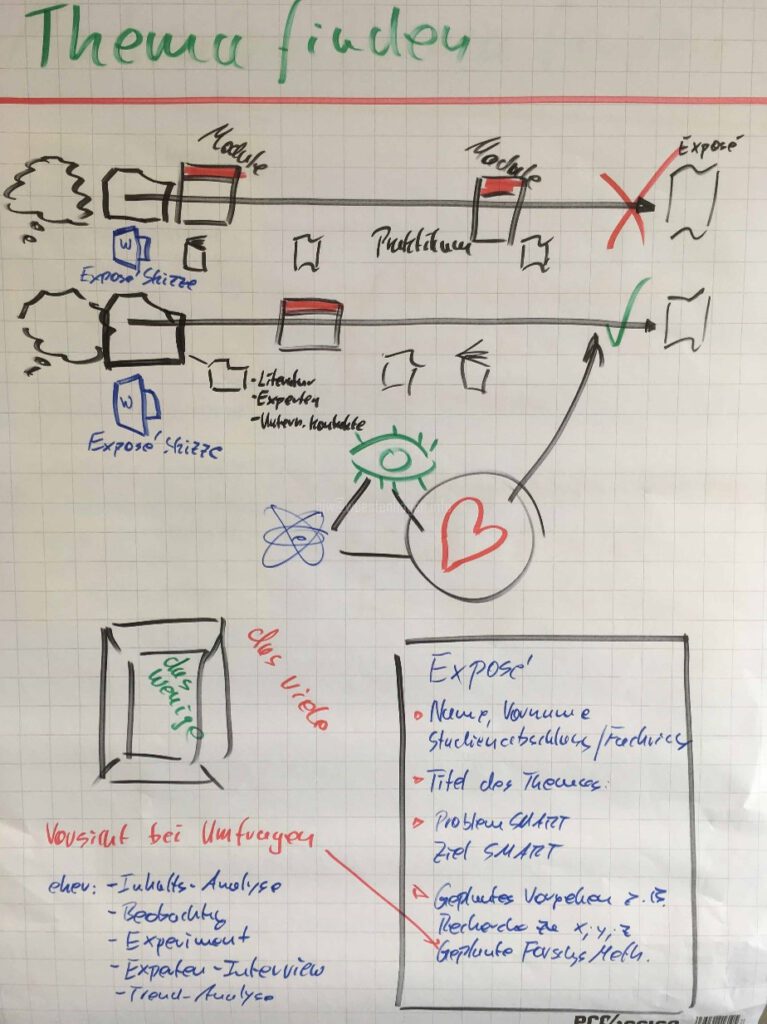 Thema finden
Module
Module
Exposé
Praktikum
W
Exposé Skizze
- Literatur
- Experten
- Untern. Kontakte
W
Exposé Skizze
e
das wenige
das viele
Exposé
Name, Vorname
Studienabschluss/Fachricg
Titel des Themas:
Problem SMART
Ziel SMART
Geplantes Vorgehen z.B.
Recherche zu x, y, z
Geplante Forschgs Meth.
Vorsicht bei Umfragen
eher: - Inhalts-Analyse
- Beobachtg
- Experiment
- Experten-Interview
- Trend-Analyse